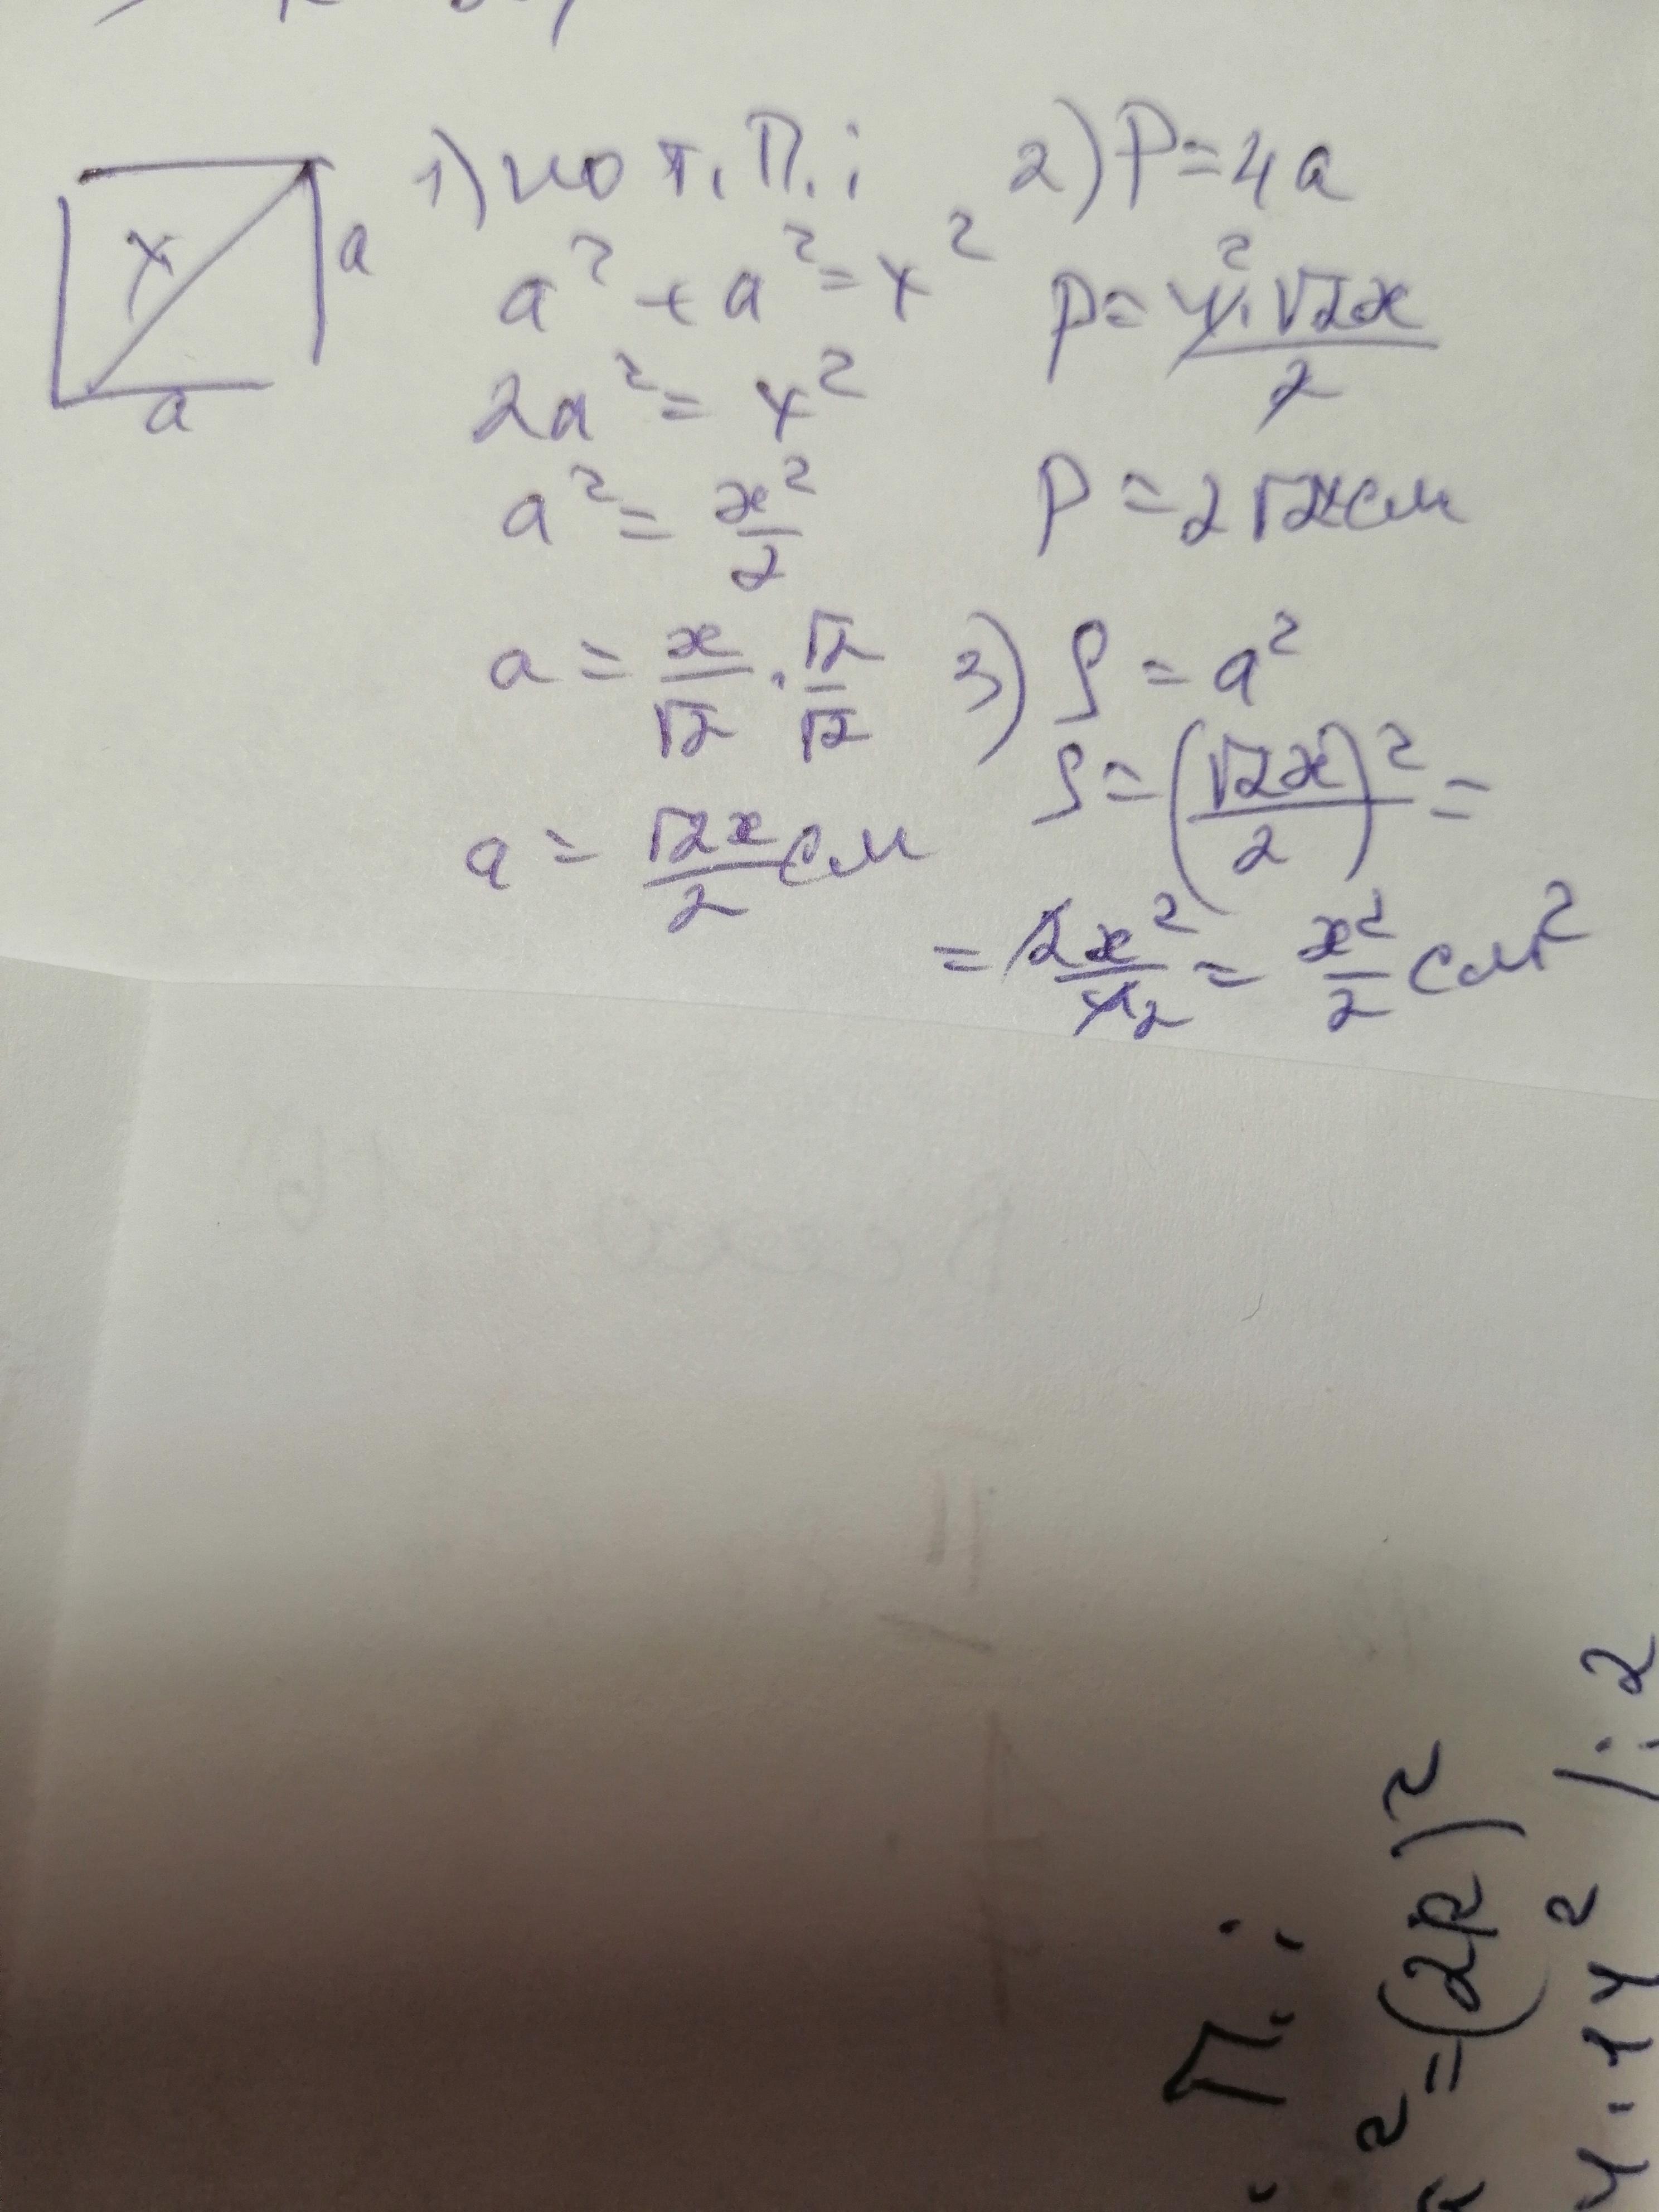 x
a
a
1) по т. П.:
a² + a² = x²
2a² = x²
a² = x²/2
a = x/√2 · √2/√2
a = √2x/2 см
2) P = 4a
P = 4² · √2x/2
P = 2√2x см
3) S = a²
S = (√2x/2)² =
= 2x²/4 2 = x²/2 см²
П.:
² = (2R)²